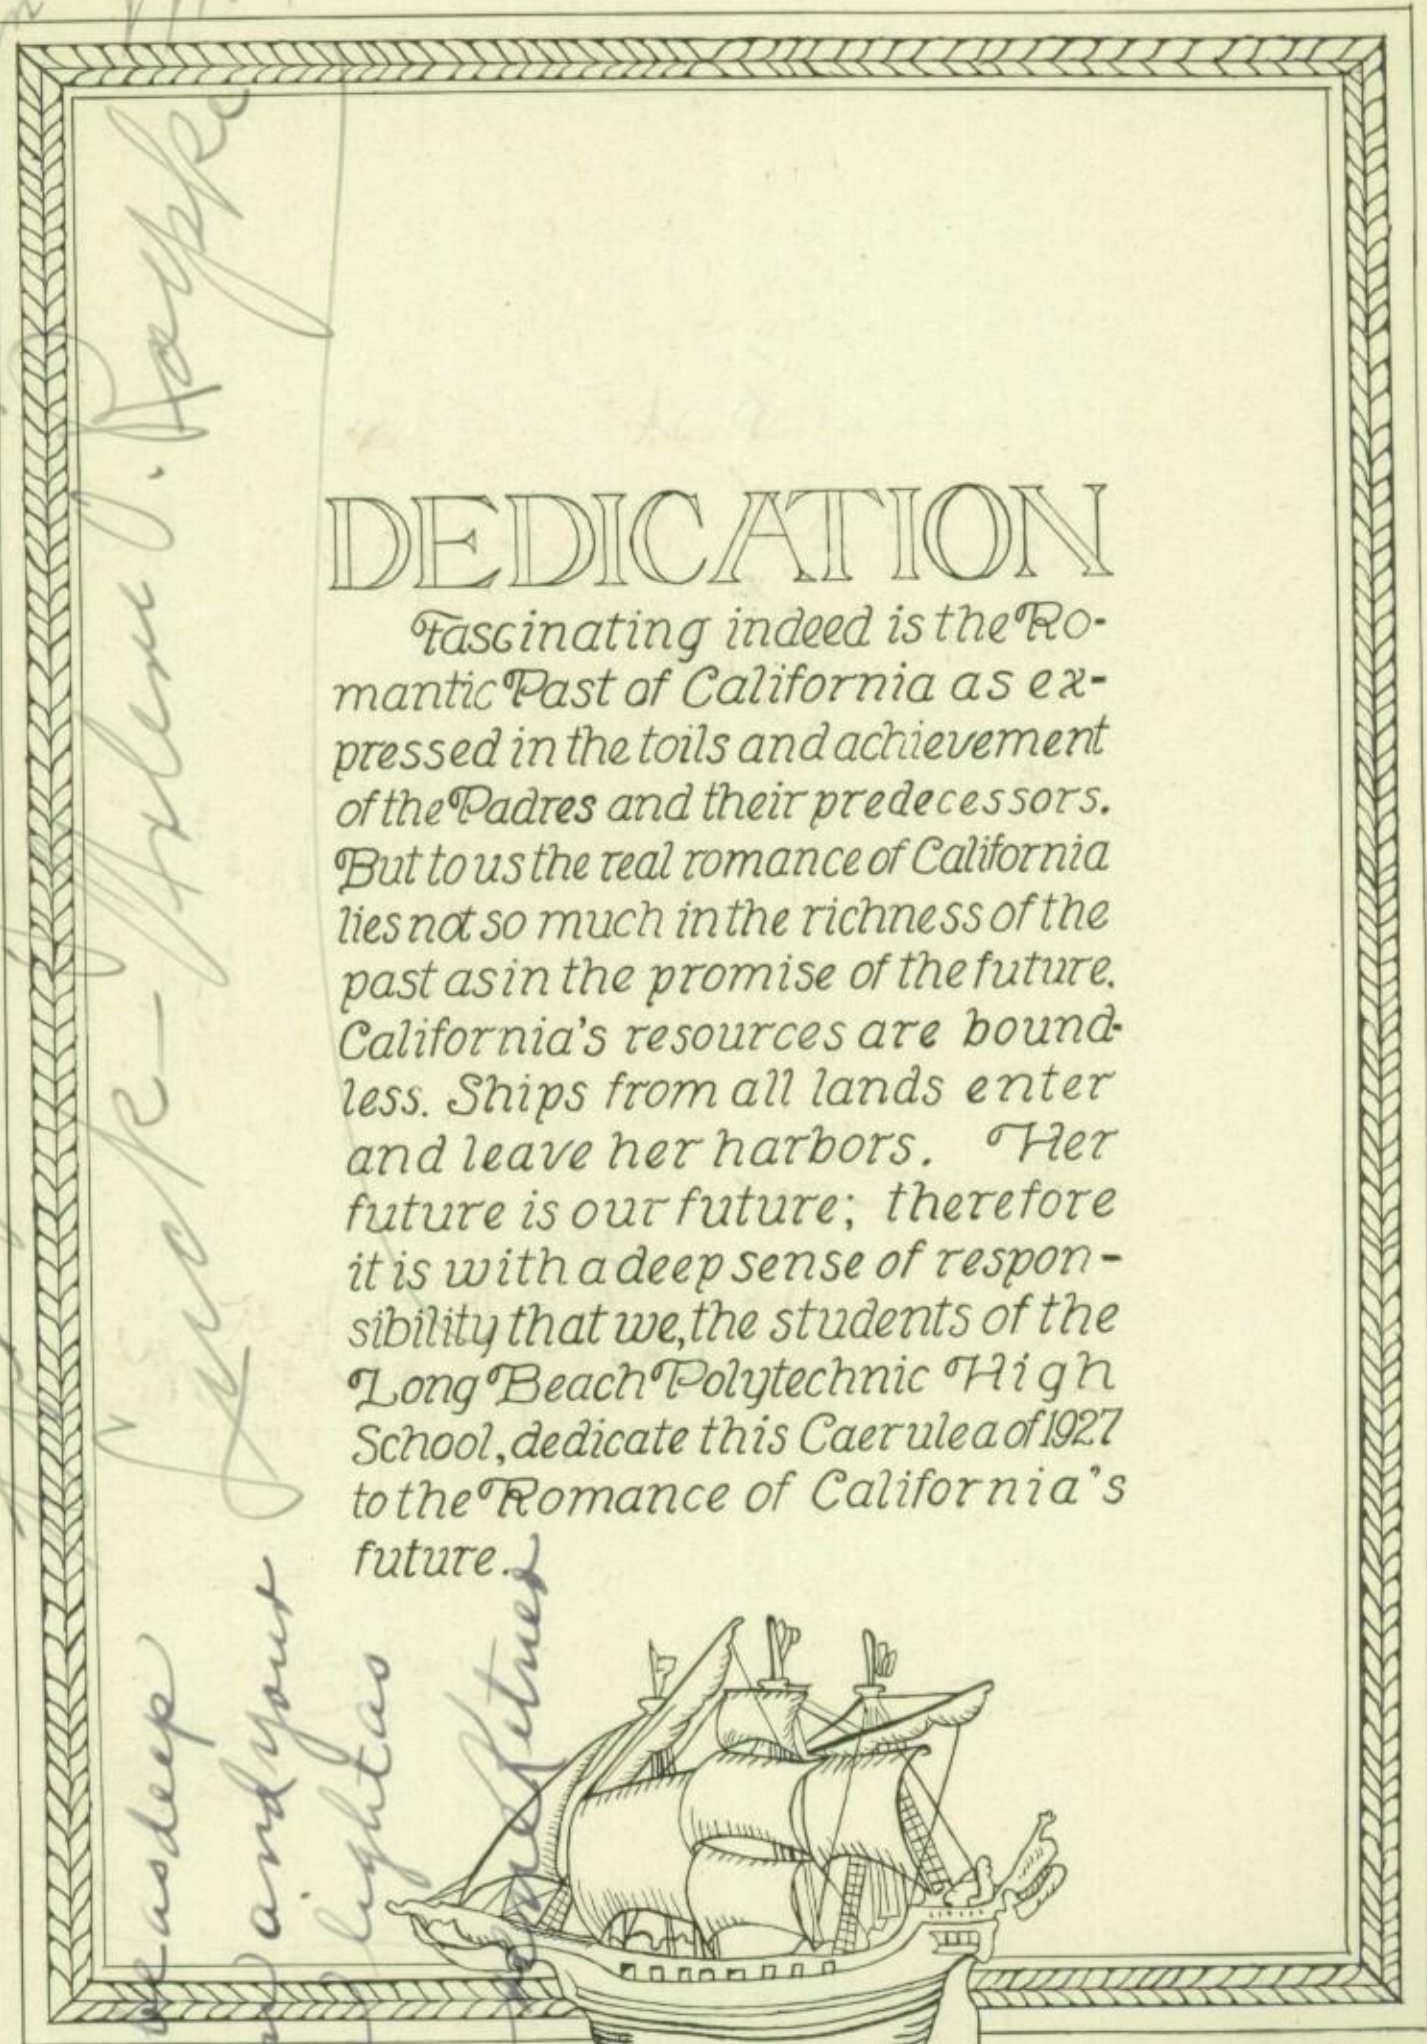 DEDICATION
Fascinating indeed is the Ro-
mantic Past of California as ex-
pressed in the toils and achievement
of the Padres and their predecessors.
But to us the real romance of California
lies not so much in the richness of the
past as in the promise of the future.
California's resources are bound-
less. Ships from all lands enter
and leave her harbors. Her
future is our future; therefore
it is with a deep sense of respon-
sibility that we, the students of the
Long Beach Polytechnic High
School, dedicate this Caerulea of 1927
to the Romance of California's
future.
Luck - Helen J.
as deep
and your
light as